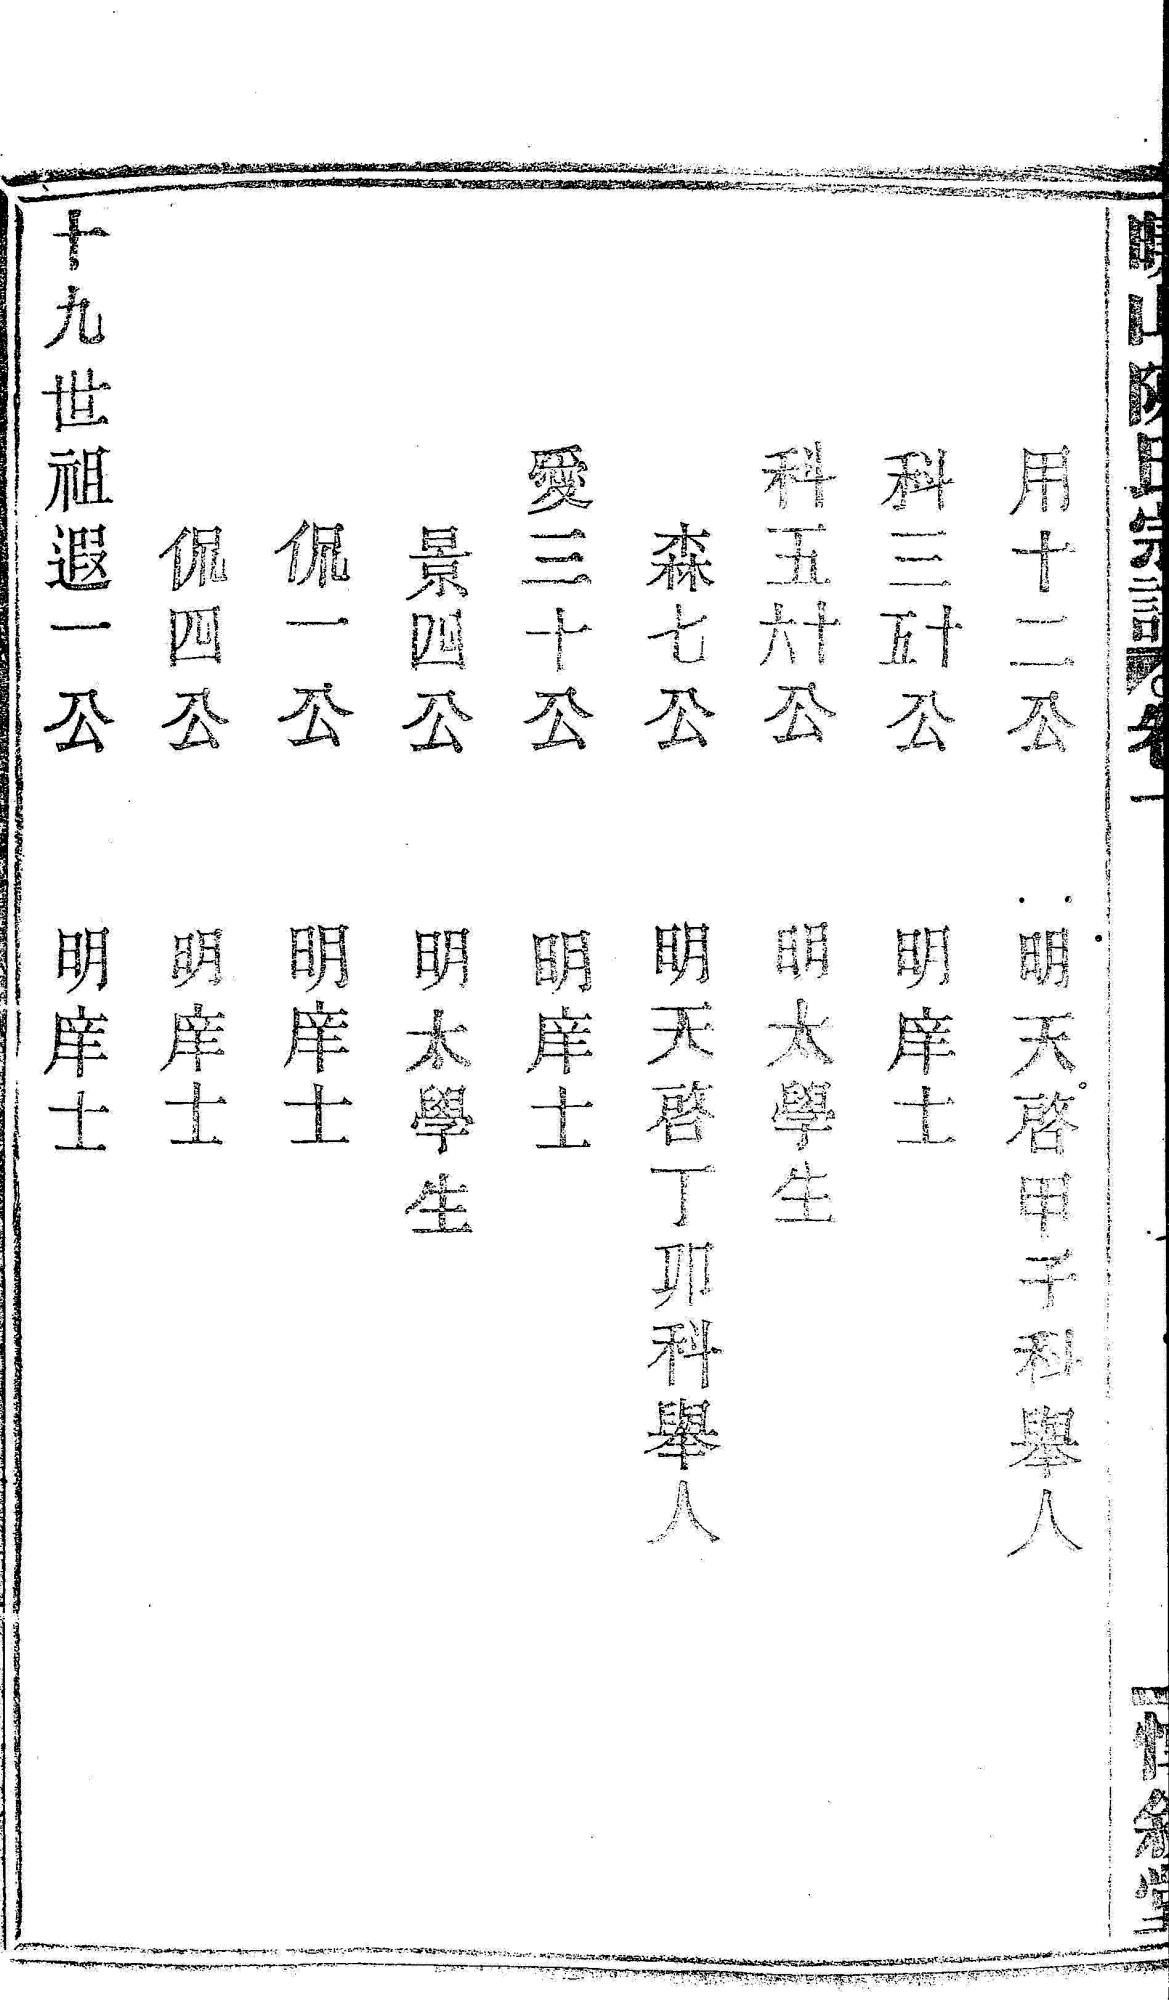 山陳氏宗譜 卷一
用十二公 明天啓甲子科舉人
科三十五公 明庠士
科五十六公 明太學生
森七公 明天啓丁卯科舉人
愛三十公 明庠士
景四公 明太學生
侃一公 明庠士
侃四公 明庠士
十九世祖遐一公 明庠士